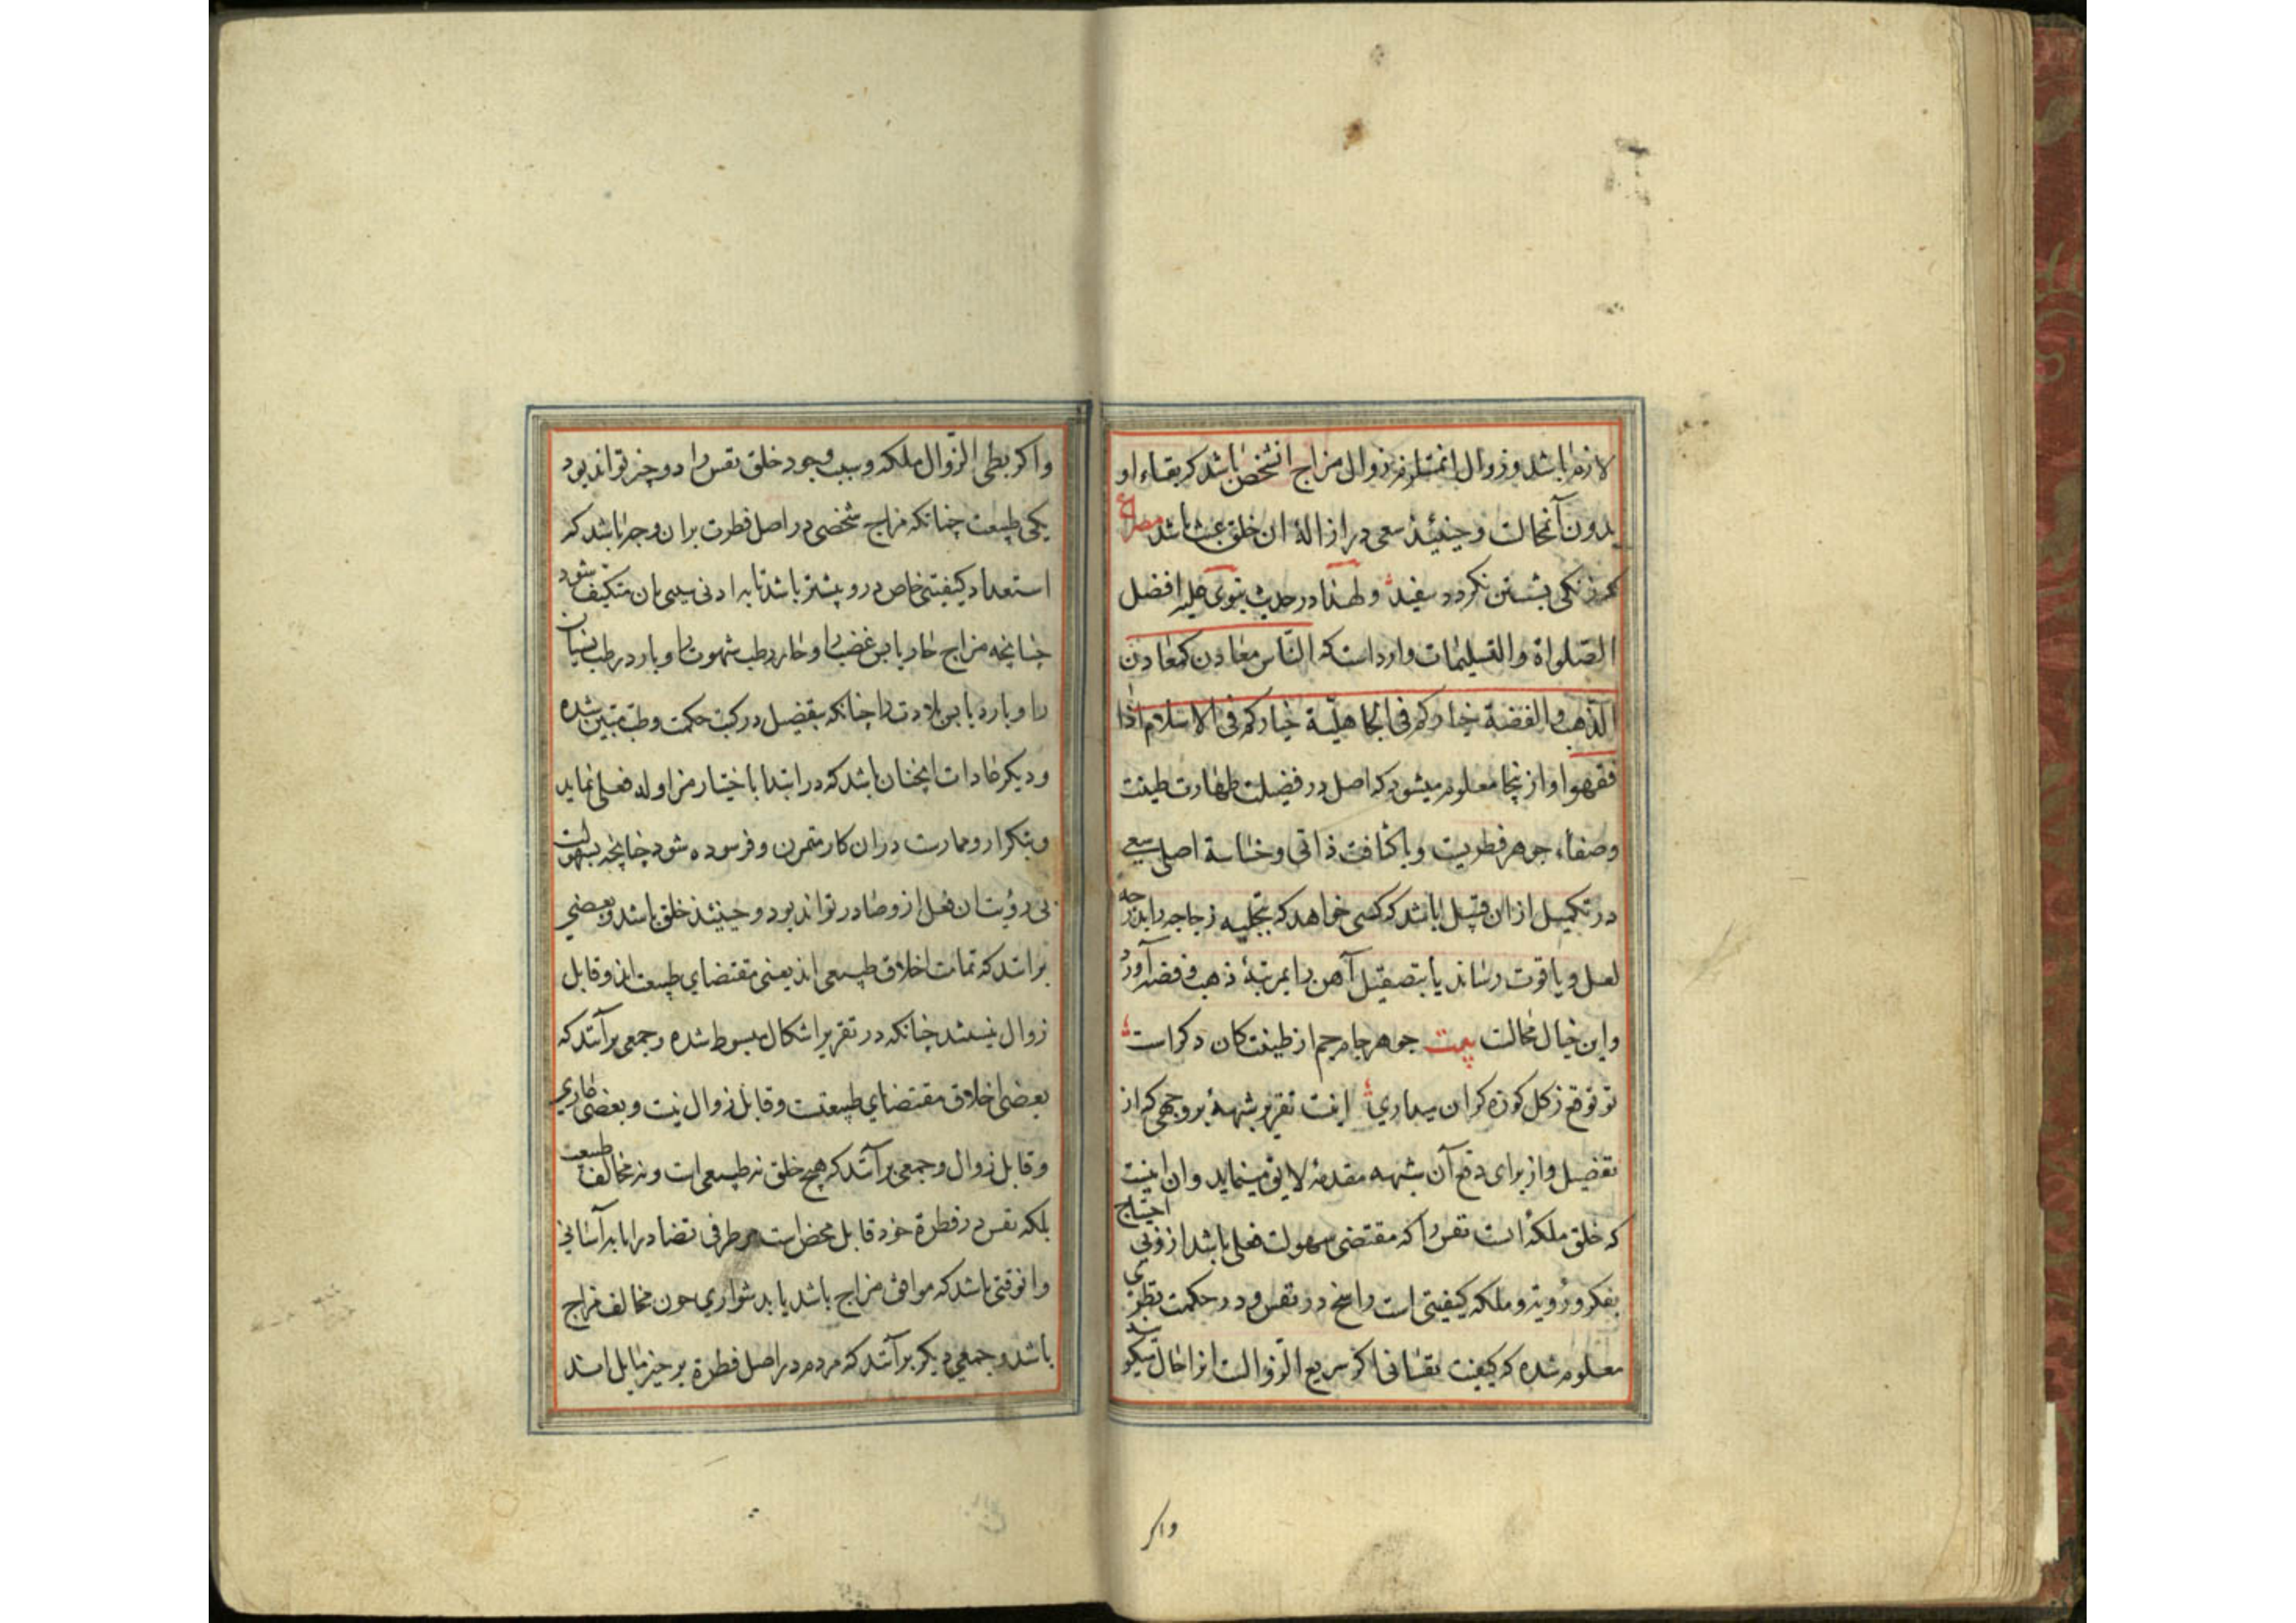 لازم باشد و زوال انمستلزم زوال مزاج انشخص باشد که بقاء او
بدون آنمحالت و حینئذ سعی در ازالهٔ ان خلق عبث باشد مصراع
که زنکی بشستن نکردد سفید و لهذا در حدیث نبوی علیه افضل
الصلواة و التسلیمات وارد است که الناس معادن کمعادن
الذهب و الفضة خیارکم فی الجاهلیة خیارکم فی الاسلام اذا
فقهوا و از ینجا معلوم میشود که اصل در فضیلت طهارت طینت
و صفاء جوهر فطریت و با کثافت ذاتی و خساسة اصلی سعی
در تکمیل از ان قبیل باشد که کسی خواهد که بتجلیه زجاجه را بدرجه
لعل و یاقوت رساند یا بتصقیل آهن را بمرتبهٔ ذهب و فضه آورد
و این خیال محالت بیت جوهر جام جم از طینت کان دکر است
تو توقع ز کل کوزه کران میداری اینت تقریر شبهه بر وجهی که از
تفضیل و از برای دفع آن شبهه مقدمهٔ لایق مینماید و ان اینست
که خلق ملکهٔ است نفس را که مقتضی سهولت فعلی باشد از وی بی احتیاج
بفکر و رویه و ملکه کیفیتی است راسخ در نفس و در حکمت نظری
معلوم شده که کیفیت نفسانی اکر سریع الزوالت انرا حال میکویند
واکر
واکر بطی الزوال ملکه و سبب وجود خلق نفس را دو چیز تواند بود
یکی طبیعت چنانکه مزاج شخصی در اصل فطرت بر ان وجه باشد که
استعداد کیفیتی خاص در و بیشتر باشد تا به ادنی سببی بان متکیف شود
چنانچه مزاج حار یابس غضب را و حار رطب شهوت را و بارد رطب نسیان
را و بارد یابس بلادت را چنانکه بتفضیل در کتب حکمت و طب مبین شده
و دیکر عادات انچنان باشد که در ابتدا باختیار مزاوله فعلی نماید
و بتکرار و ممارست در ان کار متمرن و فرسوده شود چنانچه بسهولت
بی رؤیت ان فعل از و صادر تواند بود و حینئذ خلق باشد و بعضی
بر انند که تمامت اخلاق طبیعی اند یعنی مقتضای طبیعت اند و قابل
زوال نیستند چنانکه در تقریر اشکال مبسوط شده و جمعی بر آنند که
بعضی اخلاق مقتضای طبیعتست و قابل زوال نیست و بعضی عادی
و قابل زوال و جمعی بر آنند که هیچ خلق نه طبیعی است و نه مخالف طبیعت
بلکه نفس در فطرة خود قابل محض است هر طرفی تضاد را یا به آسانی
وانوقتی باشد که موافق مزاج باشد یا بدشواری چون مخالف مزاج
باشد و جمعی دیکر بر آنند که مردم در اصل فطرة بر خیز مایل اند